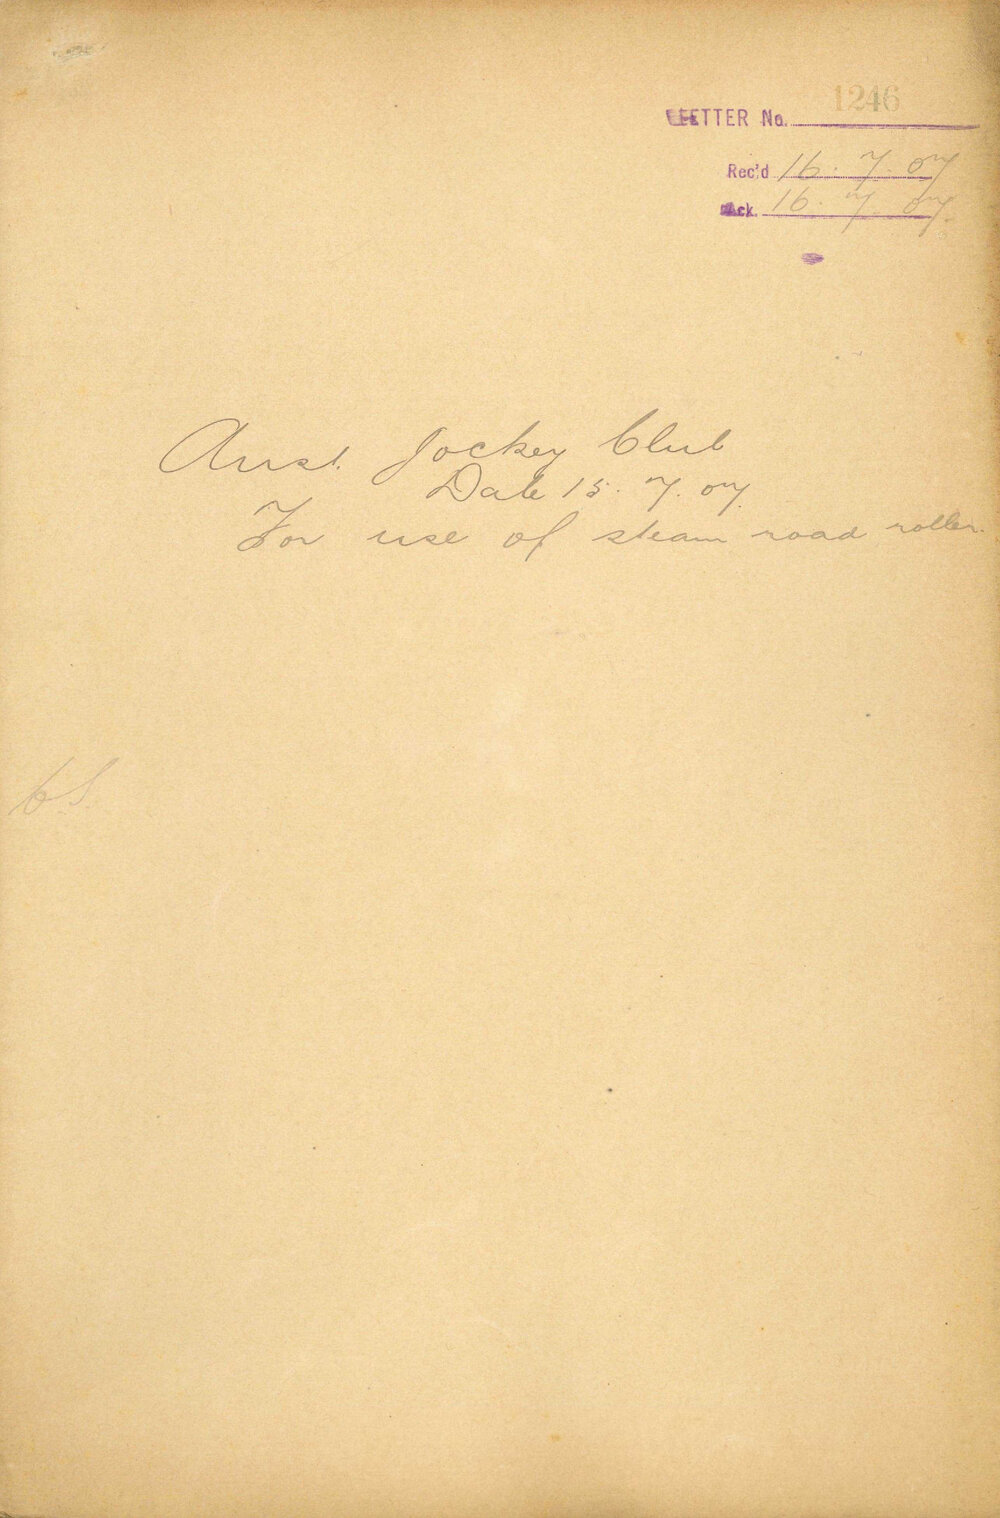 1246
LETTER No.
Rec'd 16. 7. 07
Ack. 16. 7. 07.
Aust. Jockey Club
Date 15. 7. 07.
For use of steam road roller.